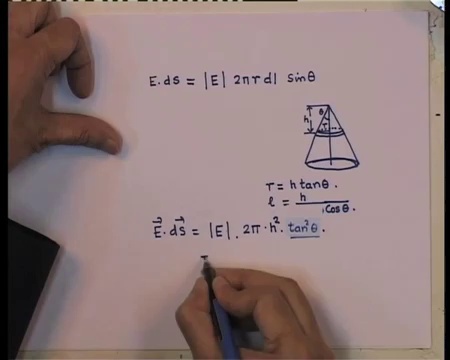 E. ds = |E| 2πr dl sinθ
θ
h
r
r = h tanθ.
l = h / Cosθ.
E⃗. ds⃗ = |E|. 2π·h². tan²θ.